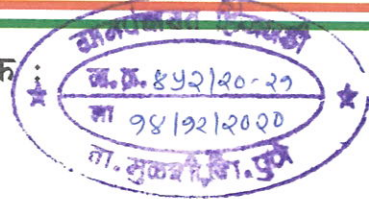 ग्रामपंचायत
क :
जा.क्र. ४५२/२०-२१
१४/१२/२०२०
ता. मुळशी, जि. पुणे